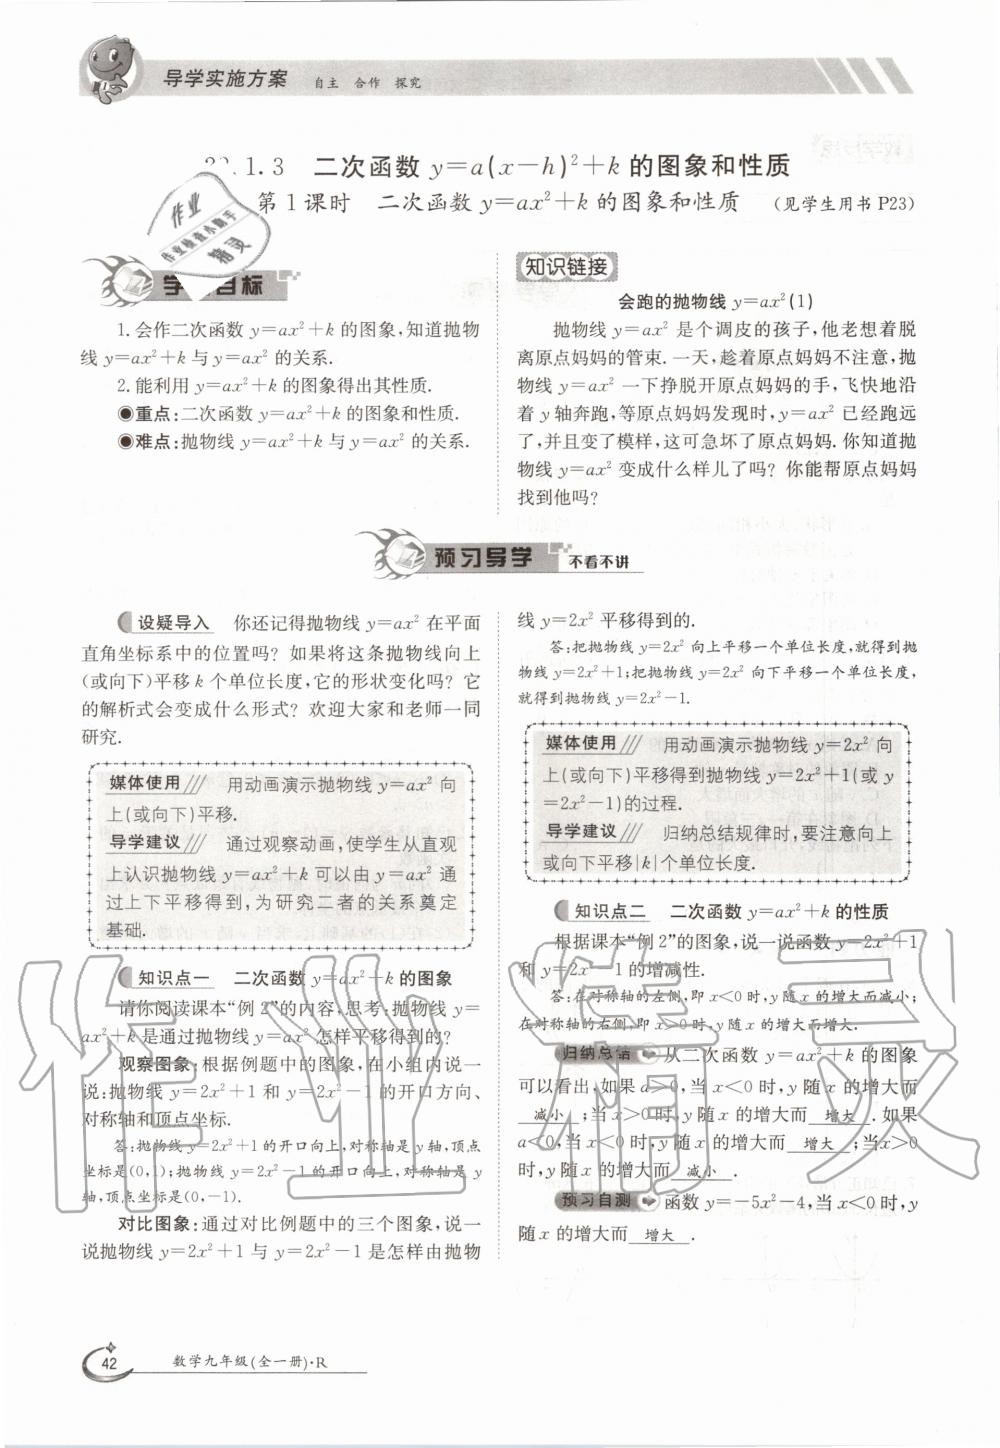 导学实施方案 自主 合作 探究
22.1.3 二次函数 y=a(x-h)²+k 的图象和性质
第1课时 二次函数 y=ax²+k 的图象和性质 (见学生用书 P23)
作业
作业检查小助手
精灵
目标
1.会作二次函数 y=ax²+k 的图象,知道抛物
线 y=ax²+k 与 y=ax² 的关系.
2.能利用 y=ax²+k 的图象得出其性质.
◉重点:二次函数 y=ax²+k 的图象和性质.
◉难点:抛物线 y=ax²+k 与 y=ax² 的关系.
知识链接
会跑的抛物线 y=ax²(1)
抛物线 y=ax² 是个调皮的孩子,他老想着脱
离原点妈妈的管束.一天,趁着原点妈妈不注意,抛
物线 y=ax² 一下挣脱开原点妈妈的手,飞快地沿
着 y 轴奔跑,等原点妈妈发现时,y=ax² 已经跑远
了,并且变了模样,这可急坏了原点妈妈.你知道抛
物线 y=ax² 变成什么样儿了吗? 你能帮原点妈妈
找到他吗?
预习导学 不看不讲
设疑导入 你还记得抛物线 y=ax² 在平面
直角坐标系中的位置吗? 如果将这条抛物线向上
(或向下)平移 k 个单位长度,它的形状变化吗? 它
的解析式会变成什么形式? 欢迎大家和老师一同
研究.
媒体使用 用动画演示抛物线 y=ax² 向
上(或向下)平移.
导学建议 通过观察动画,使学生从直观
上认识抛物线 y=ax²+k 可以由 y=ax² 通
过上下平移得到,为研究二者的关系奠定
基础.
知识点一 二次函数 y=ax²+k 的图象
请你阅读课本“例2”的内容,思考:抛物线 y=
ax²+k 是通过抛物线 y=ax² 怎样平移得到的?
观察图象:根据例题中的图象,在小组内说一
说:抛物线 y=2x²+1 和 y=2x²-1 的开口方向、
对称轴和顶点坐标.
答:抛物线 y=2x²+1 的开口向上,对称轴是 y 轴,顶点
坐标是(0,1);抛物线 y=2x²-1 的开口向上,对称轴是 y
轴,顶点坐标是(0,-1).
对比图象:通过对比例题中的三个图象,说一
说抛物线 y=2x²+1 与 y=2x²-1 是怎样由抛物
线 y=2x² 平移得到的.
答:把抛物线 y=2x² 向上平移一个单位长度,就得到抛
物线 y=2x²+1;把抛物线 y=2x² 向下平移一个单位长度,
就得到抛物线 y=2x²-1.
媒体使用 用动画演示抛物线 y=2x² 向
上(或向下)平移得到抛物线 y=2x²+1(或 y
=2x²-1)的过程.
导学建议 归纳总结规律时,要注意向上
或向下平移|k|个单位长度.
知识点二 二次函数 y=ax²+k 的性质
根据课本“例2”的图象,说一说函数 y=2x²+1
和 y=2x²-1 的增减性.
答:在对称轴的左侧,即 x<0 时,y 随 x 的增大而减小;
在对称轴的右侧,即 x>0 时,y 随 x 的增大而增大.
归纳总结 从二次函数 y=ax²+k 的图象
可以看出,如果 a>0,当 x<0 时,y 随 x 的增大而
减小 ;当 x>0 时,y 随 x 的增大而 增大 .如果
a<0,当 x<0 时,y 随 x 的增大而 增大 ;当 x>0
时,y 随 x 的增大而 减小 .
预习自测 函数 y=-5x²-4,当 x<0 时,y
随 x 的增大而 增大 .
作业精灵
42 数学九年级(全一册)·R